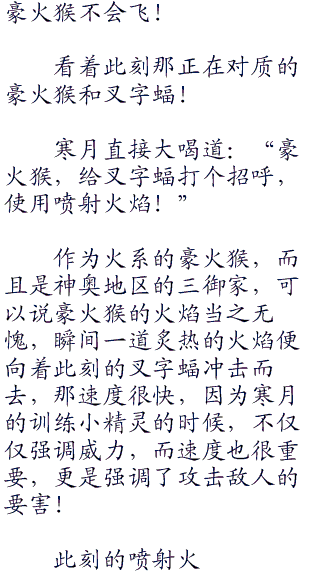 豪火猴不会飞！
看着此刻那正在对质的
豪火猴和叉字蝠！
寒月直接大喝道：“豪
火猴，给叉字蝠打个招呼，
使用喷射火焰！”
作为火系的豪火猴，而
且是神奥地区的三御家，可
以说豪火猴的火焰当之无
愧，瞬间一道炙热的火焰便
向着此刻的叉字蝠冲击而
去，那速度很快，因为寒月
的训练小精灵的时候，不仅
仅强调威力，而速度也很重
要，更是强调了攻击敌人的
要害！
此刻的喷射火